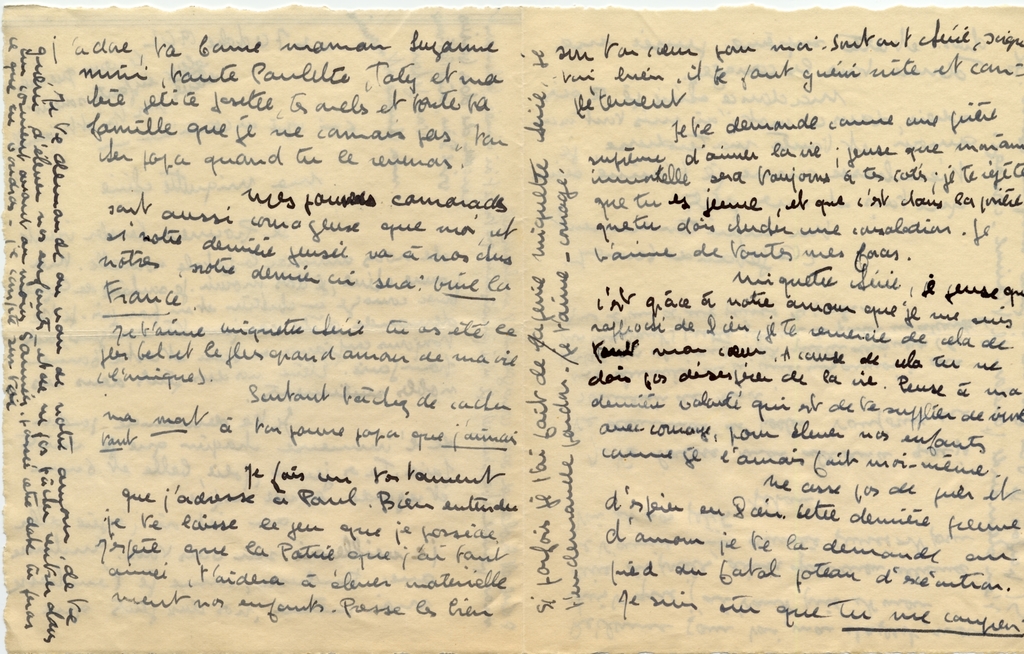 j'adore, ta bonne maman Suzanne
mimi, tante Paulette, Taty et ma
petite Josette, tes oncles et toute ta
famille que je ne connais pas, ton
cher papa quand tu le reverras.
Mes pauvres camarades
sont aussi courageux que moi, et
si notre dernière pensée va à nos chers
nôtres, notre dernier cri sera : vive la
France
Je t'aime miquette chérie tu as été le
plus bel et le plus grand amour de ma vie
(l'unique).
Surtout tâchez de cacher
ma mort à ton pauvre papa que j'aimais
tant
Je fais un testament
que j'adresse à Paul. Bien entendu
je te laisse le peu que je possède,
j'espère que la Patrie que j'ai tant
aimée, t'aidera à élever matérielle
ment nos enfants. Presse les bien
Je te demande au nom de notre amour de te
d'élever nos enfants et de ne pas tâcher rentrer dans
un couvent avant au moins années.
ce que tu voudras - je compte sur ton
sur ton cœur pour moi. Surtout chérie, soigne
toi bien, il te faut guérir vite et com-
plètement
Je te demande comme une prière
suprême d'aimer la vie ; pense que mon âme
immortelle sera toujours à tes côtés ; je te répète
que tu es jeune, et que c'est dans la prière
que tu dois chercher une consolation. Je
t'aime de toutes mes forces.
Miquette chérie, je pense que
c'est grâce à notre amour que je me suis
rapproché de Dieu, je te remercie de cela de
tout mon cœur. A cause de cela tu ne
dois pas désespérer de la vie. Pense à ma
dernière volonté qui est de te supplier de vivre
avec courage, pour élever nos enfants
comme je l'aurais fait moi-même.
Ne cesse pas de prier et
d'espérer en Dieu. Cette dernière preuve
d'amour je te la demande au
pied du fatal poteau d'exécution.
Je suis sûr que tu me compren-
Si parfois je t'ai fait de la peine miquette chérie, je
t'en demande pardon. Je t'aime - courage.